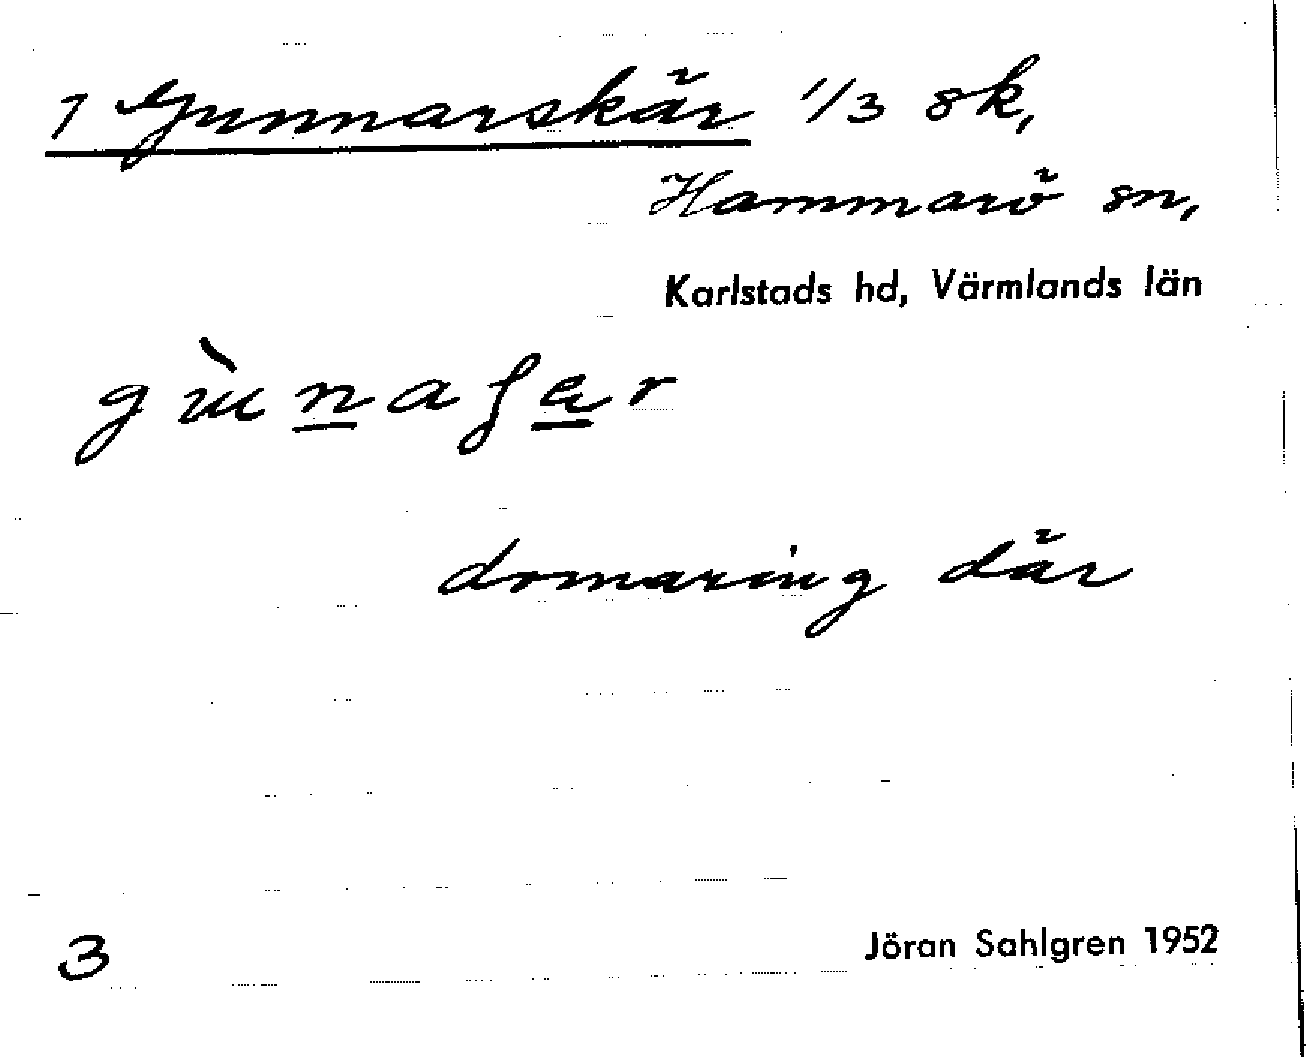 1 Gunnarskär 1/3 sk,
Hammarö sn,
Karlstads hd, Värmlands län
domaring där
3
Jöran Sahlgren 1952